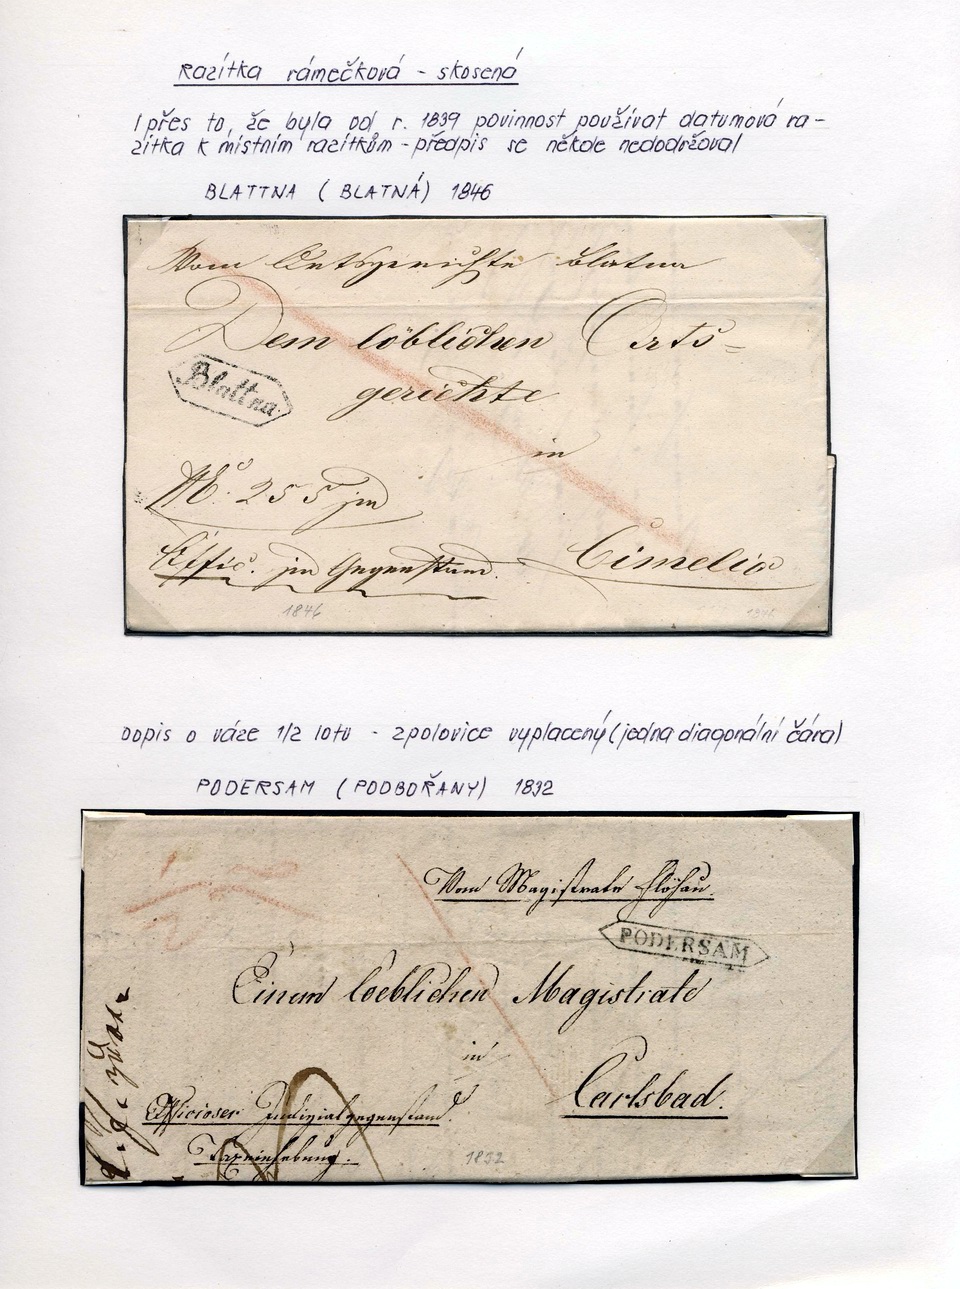 Razítka rámečková - skosená
I přes to, že byla od r. 1839 povinnost používat datumová ra-
zítka k místním razítkům - předpis se někde nedodržoval
BLATTNA (BLATNÁ) 1846
Vom Ortsgerichte Blatna
Dem löblichen Orts=
gerichte
Blattna
in
N. 255 jud
Offic. jud Gegenstand.
Cimelic
1846
1846
Dopis o váze 1/2 lotu - zpolovice vyplacený (jedna diagonální čára)
PODERSAM (PODBOŘANY) 1832
Vom Magistrate Flöhau.
PODERSAM
Einem loeblichen Magistrate
in
Carlsbad.
Officioser Judizialgegenstand
Taxeinhebung.
1832